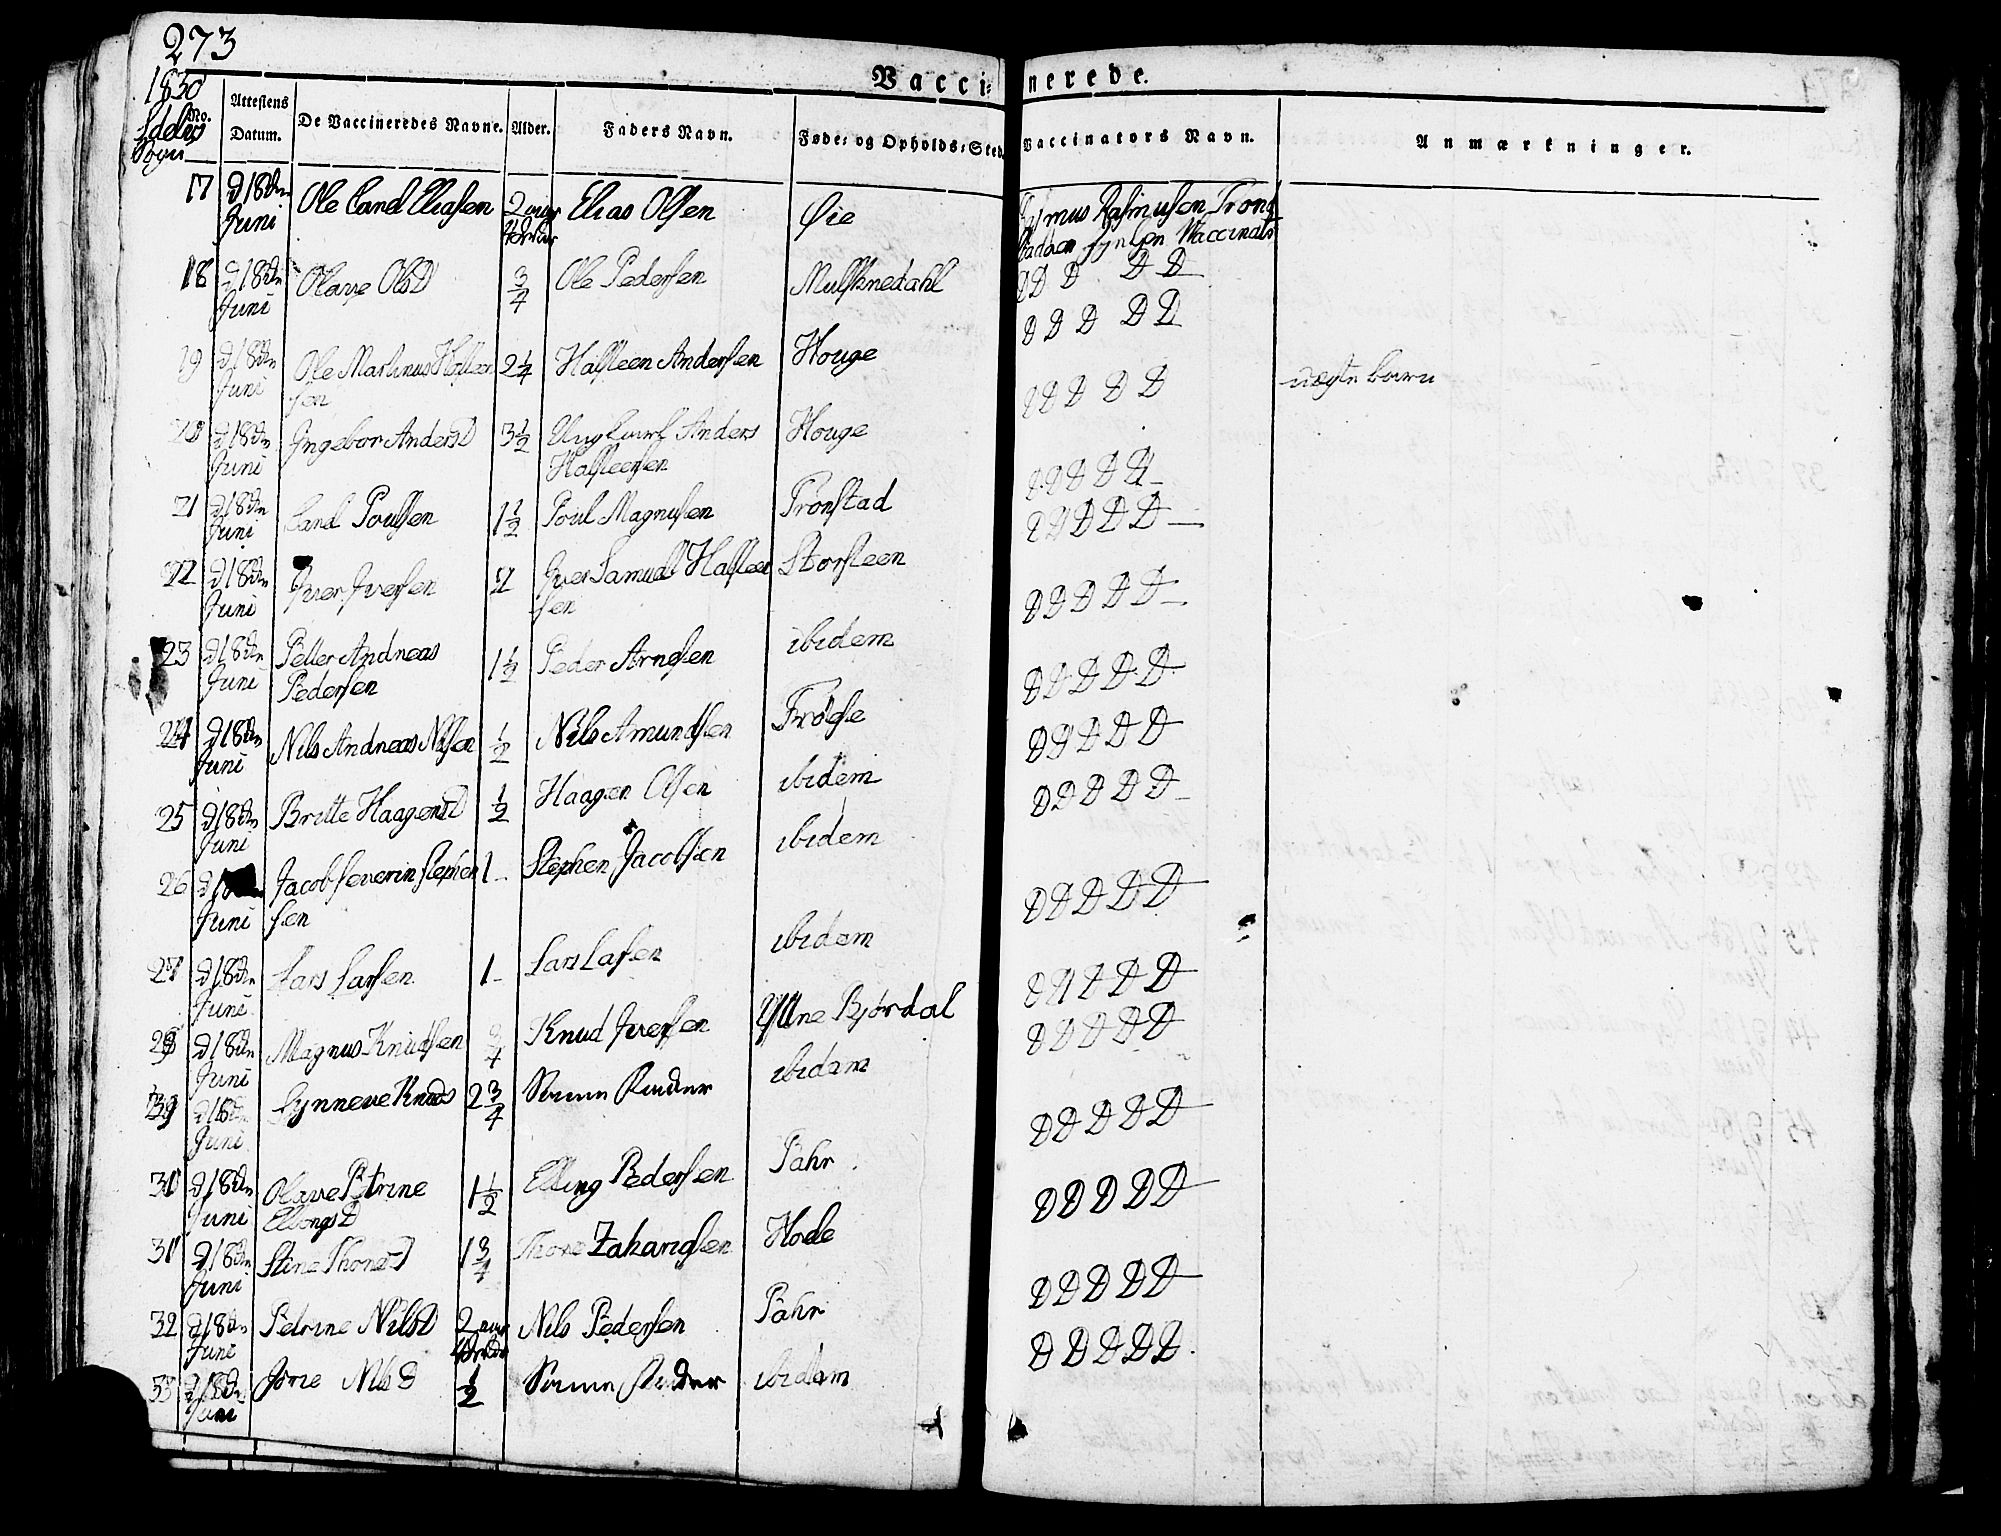 273
1830
Vaccinerede.
No.
Sogn
Attestens Datum.
De Vaccineredes Navne.
Alder.
Faders Navn.
Føde- og Opholds-Sted
Vaccinators Navn.
Anmærkninger.
17 d 18den Juni Ole Eliasen 2 Elias Olsen Øie Rasmus Rasmusen
18 d 18den Juni Olave OlsD 3/4 Ole Pedersen D D D D D
19 d 18den Juni Ole Martinus Halsteensen 2 1/4 Halsteen Andersen Houge D D D D D
20 d 18den Juni Ingebor AndersD 3 1/2 Ungkarl Anders Halsteensen Houge D D D D D uægte barn
21 d 18den Juni Poulsen 1 1/2 Poul Magnusen Tronstad D D D D D
22 d 18den Juni Iver Iversen Iver Samuel Halsteensen Storsteen D D D D D
23 d 18den Juni Petter Andreas Pedersen 1 1/2 Peder Arnesen ibidem D D D D D
24 d 18den Juni Nils Andreas Nilsen 1/2 Nils Amundsen Frøese D D D D D
25 d 18den Juni Britte HaagensD 1/2 Haagen Olsen ibidem D D D D D
26 Juni Jacob Severin Stephensen 1 Stephen Jacobsen ibidem D D D D D
27 d 18den Juni Lars Larsen 1 Lars Lasen ibidem D D D D D
28 d 18den Juni Magnus Knudsen 3/4 Knud Iversen Yttne Bjørdal D D D D D
d 18den Juni Synneve KnudsD 2 3/4 Samme Fader ibidem D D D D D
d 18den Juni Olave Petrine EllingsD 1 1/2 Elling Pedersen Pahr D D D D D
31 d 18den Juni Stine ThoreD 1 3/4 Thore Zakariasen Hole D D D D D
32 d 18den Juni Petrine NilsD 2 Nils Pedersen Pahr D D D D D
33 d 18den Juni NilsD 1/2 Samme Fader ibidem